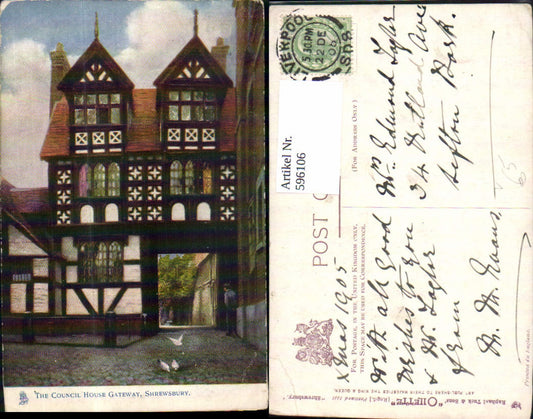 THE COUNCIL HOUSE GATEWAY, SHREWSBURY.
LIVERPOOL
5.30PM
22 DE
05
Artikel Nr.
596106
POST C
(FOR ADDRESS ONLY.)
Mrs Edward Taylor
34 Rutland Ave
Sefton Park.
65
FOR POSTAGE, IN THE UNITED KINGDOM ONLY,
THIS SPACE MAY BE USED FOR CORRESPONDENCE.
Xmas 1905
With all good
wishes to you
& Mr Taylor
from
M. M. Evans.
Raphael Tuck & Sons'
"OILETTE"
[Regd.] Postcard 1121
"Shrewsbury."
ART PUBLISHERS TO THEIR MAJESTIES THE KING AND QUEEN.
Printed in England.